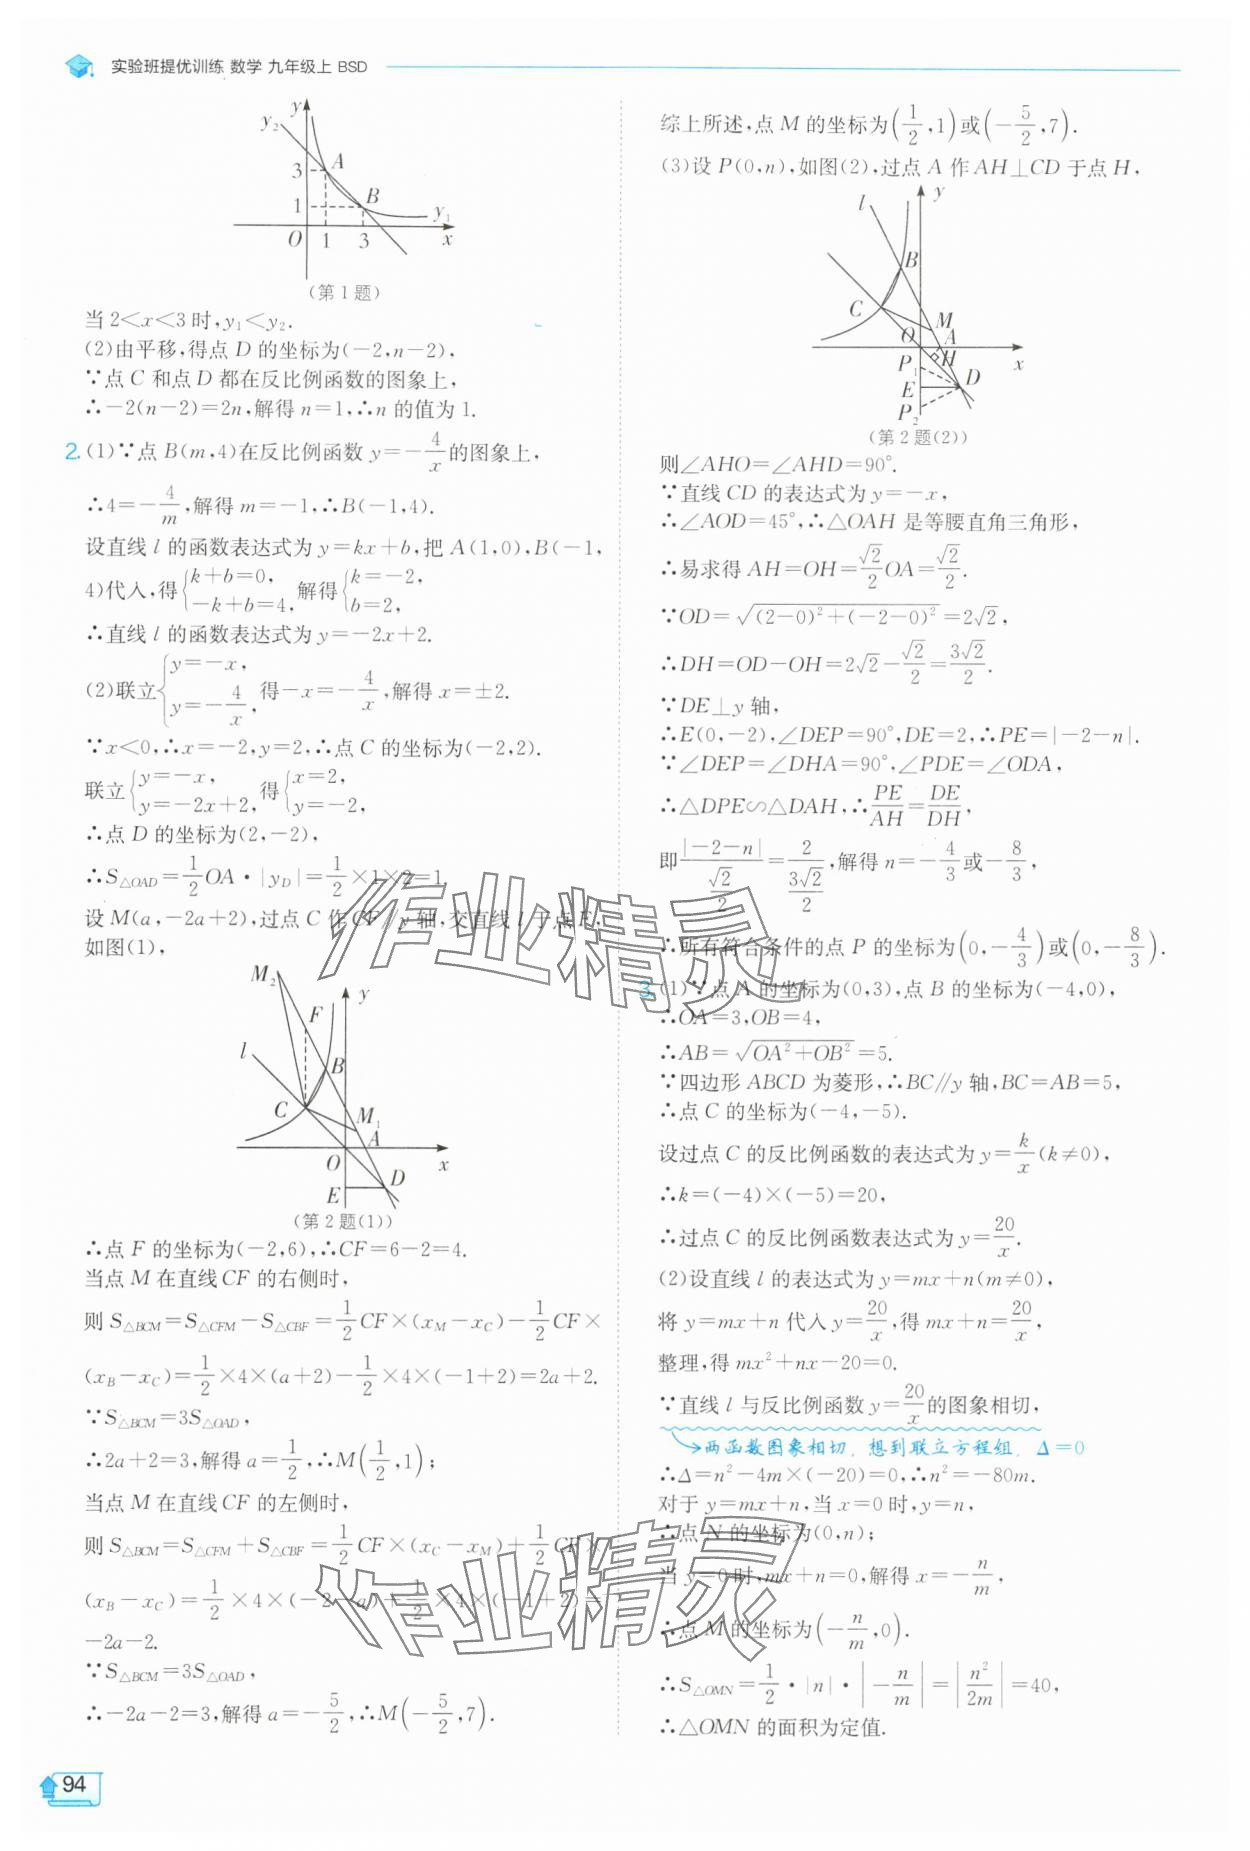 实验班提优训练 数学 九年级上 BSD
y₂ y A 3 1 B y₁ O 1 3 x
(第1题)
当2<x<3时,y₁<y₂.
(2)由平移,得点D的坐标为(-2,n-2),
∵点C和点D都在反比例函数的图象上,
∴-2(n-2)=2n,解得n=1,∴n的值为1.
2. (1)∵点B(m,4)在反比例函数y=-4/x的图象上,
∴4=-4/m,解得m=-1,∴B(-1,4).
设直线l的函数表达式为y=kx+b,把A(1,0),B(-1,
4)代入,得{k+b=0, -k+b=4, 解得{k=-2, b=2,
∴直线l的函数表达式为y=-2x+2.
(2)联立{y=-x, y=-4/x, 得-x=-4/x,解得x=±2.
∵x<0,∴x=-2,y=2,∴点C的坐标为(-2,2).
联立{y=-x, y=-2x+2, 得{x=2, y=-2,
∴点D的坐标为(2,-2),
∴S△OAD=1/2OA·|y_D|=1/2×1×2=1.
设M(a,-2a+2),过点C作CF∥y轴,交直线l于点F,
如图(1),
M₂ y F l B C M₁ A O x E D
(第2题(1))
∴点F的坐标为(-2,6),∴CF=6-2=4.
当点M在直线CF的右侧时,
则S△BCM=S△CFM-S△CBF=1/2CF×(x_M-x_C)-1/2CF×
(x_B-x_C)=1/2×4×(a+2)-1/2×4×(-1+2)=2a+2.
∵S△BCM=3S△OAD,
∴2a+2=3,解得a=1/2,∴M(1/2,1);
当点M在直线CF的左侧时,
则S△BCM=S△CFM+S△CBF=1/2CF×(x_C-x_M)+1/2CF×
(x_B-x_C)=1/2×4×(-2-a)+1/2×4×(-1+2)=
-2a-2.
∵S△BCM=3S△OAD,
∴-2a-2=3,解得a=-5/2,∴M(-5/2,7).
94
综上所述,点M的坐标为(1/2,1)或(-5/2,7).
(3)设P(0,n),如图(2),过点A作AH⊥CD于点H,
l y B C M O A H x P₁ E D P₂
(第2题(2))
则∠AHO=∠AHD=90°.
∵直线CD的表达式为y=-x,
∴∠AOD=45°,∴△OAH是等腰直角三角形,
∴易求得AH=OH=√2/2OA=√2/2.
∵OD=√((2-0)²+(-2-0)²)=2√2,
∴DH=OD-OH=2√2-√2/2=3√2/2.
∵DE⊥y轴,
∴E(0,-2),∠DEP=90°,DE=2,∴PE=|-2-n|.
∵∠DEP=∠DHA=90°,∠PDE=∠ODA,
∴△DPE∽△DAH,∴PE/AH=DE/DH,
即|-2-n|/(√2/2)=2/(3√2/2),解得n=-4/3或-8/3,
∴所有符合条件的点P的坐标为(0,-4/3)或(0,-8/3).
3. (1)∵点A的坐标为(0,3),点B的坐标为(-4,0),
∴OA=3,OB=4,
∴AB=√(OA²+OB²)=5.
∵四边形ABCD为菱形,∴BC∥y轴,BC=AB=5,
∴点C的坐标为(-4,-5).
设过点C的反比例函数的表达式为y=k/x(k≠0),
∴k=(-4)×(-5)=20,
∴过点C的反比例函数表达式为y=20/x.
(2)设直线l的表达式为y=mx+n(m≠0),
将y=mx+n代入y=20/x,得mx+n=20/x,
整理,得mx²+nx-20=0.
∵直线l与反比例函数y=20/x的图象相切,
两函数图象相切,想到联立方程组,Δ=0
∴Δ=n²-4m×(-20)=0,∴n²=-80m.
对于y=mx+n,当x=0时,y=n,
∴点N的坐标为(0,n);
当y=0时,mx+n=0,解得x=-n/m,
∴点M的坐标为(-n/m,0).
∴S△OMN=1/2·|n|·|-n/m|=|n²/2m|=40,
∴△OMN的面积为定值.
作业精灵
作业精灵